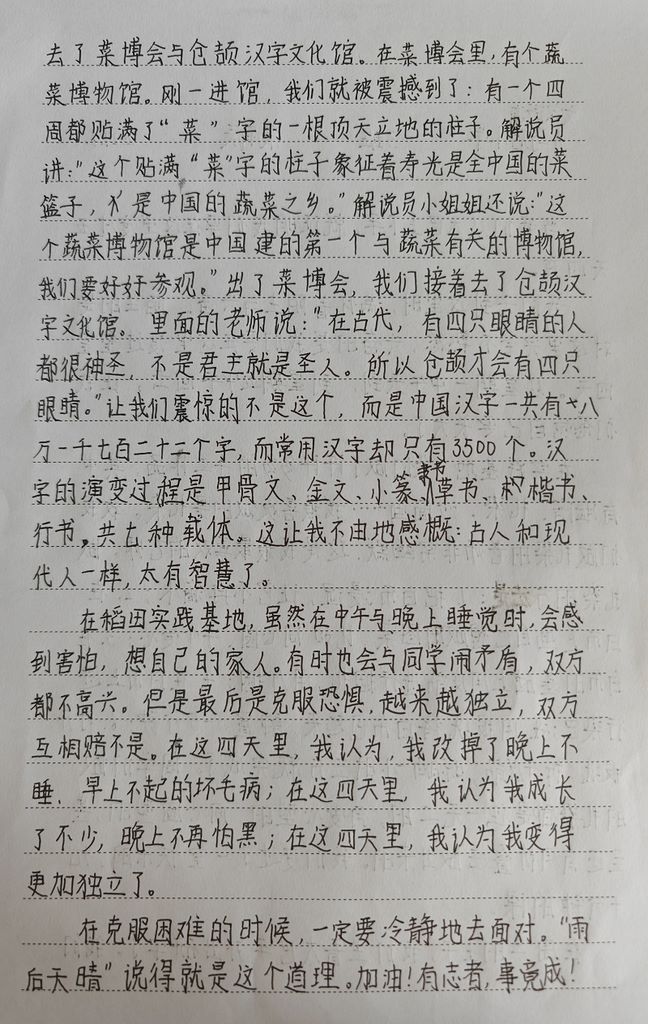 去了菜博会与仓颉汉字文化馆。在菜博会里,有个蔬
菜博物馆。刚一进馆,我们就被震撼到了:有一个四
周都贴满了“菜”字的一根顶天立地的柱子。解说员
讲:“这个贴满“菜”字的柱子象征着寿光是全中国的菜
篮子,是中国的蔬菜之乡。”解说员小姐姐还说:“这
个蔬菜博物馆是中国建的第一个与蔬菜有关的博物馆,
我们要好好参观。”出了菜博会,我们接着去了仓颉汉
字文化馆。里面的老师说:“在古代,有四只眼睛的人
都很神圣,不是君主就是圣人。所以仓颉才会有四只
眼睛。”让我们震惊的不是这个,而是中国汉字一共有十八
万一千七百二十二个字,而常用汉字却只有3500个。汉
字的演变过程是甲骨文、金文、小篆、隶书、草书、楷书、
行书。共七种载体。这让我不由地感概:古人和现
代人一样,太有智慧了。
在稻田实践基地,虽然在中午与晚上睡觉时,会感
到害怕,想自己的家人。有时也会与同学闹矛盾,双方
都不高兴。但是最后是克服恐惧,越来越独立,双方
互相赔不是。在这四天里,我认为,我改掉了晚上不
睡、早上不起的坏毛病;在这四天里,我认为我成长
了不少,晚上不再怕黑;在这四天里,我认为我变得
更加独立了。
在克服困难的时候,一定要冷静地去面对。“雨
后天晴”说得就是这个道理。加油!有志者,事竟成!